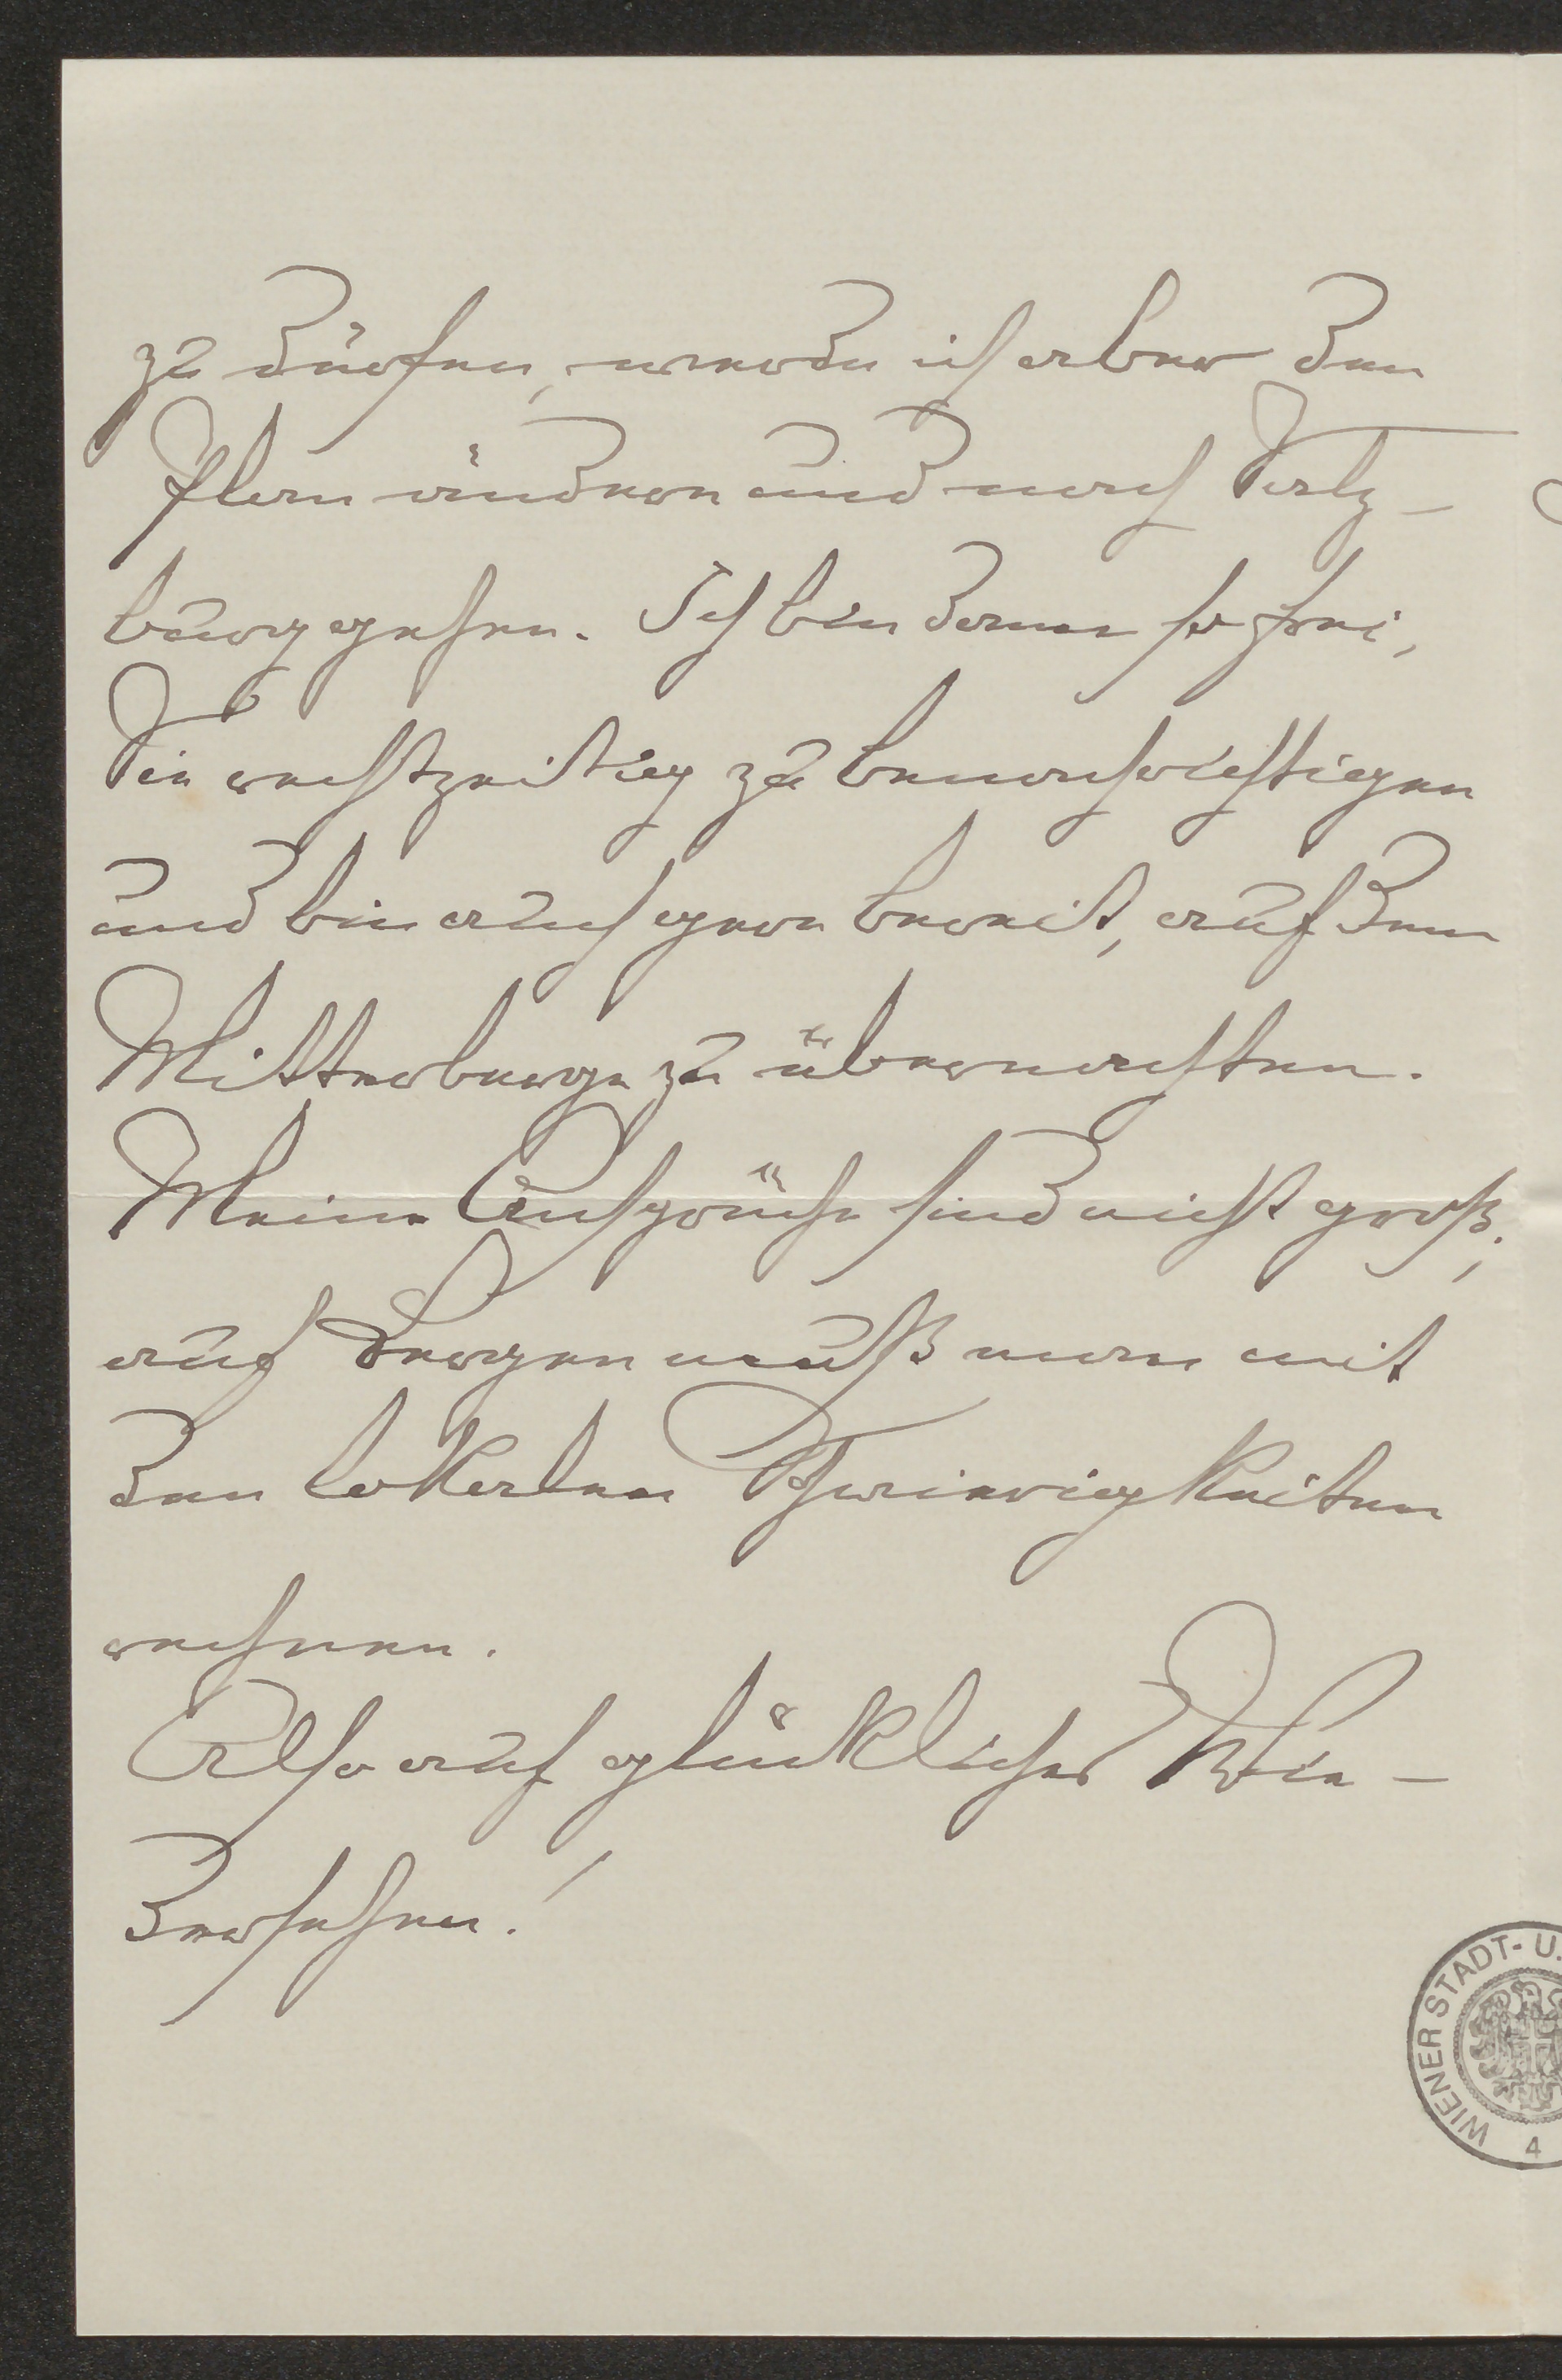 zu dürfen, werde ich aber den
Plan ändern und nach Salz-
burg gehen. Ich bin dann so frei,
Sie rechtzeitig zu benachrichtigen
und bin auch gern bereit, auf dem
Mitterberge zu übernachten.
Meine Ansprüche sind nicht groß;
auf Bergen muß man mit
den lokalen Schwierigkeiten
rechnen.
Also auf glückliches Wie-
dersehen!
WIENER STADT- U.
4